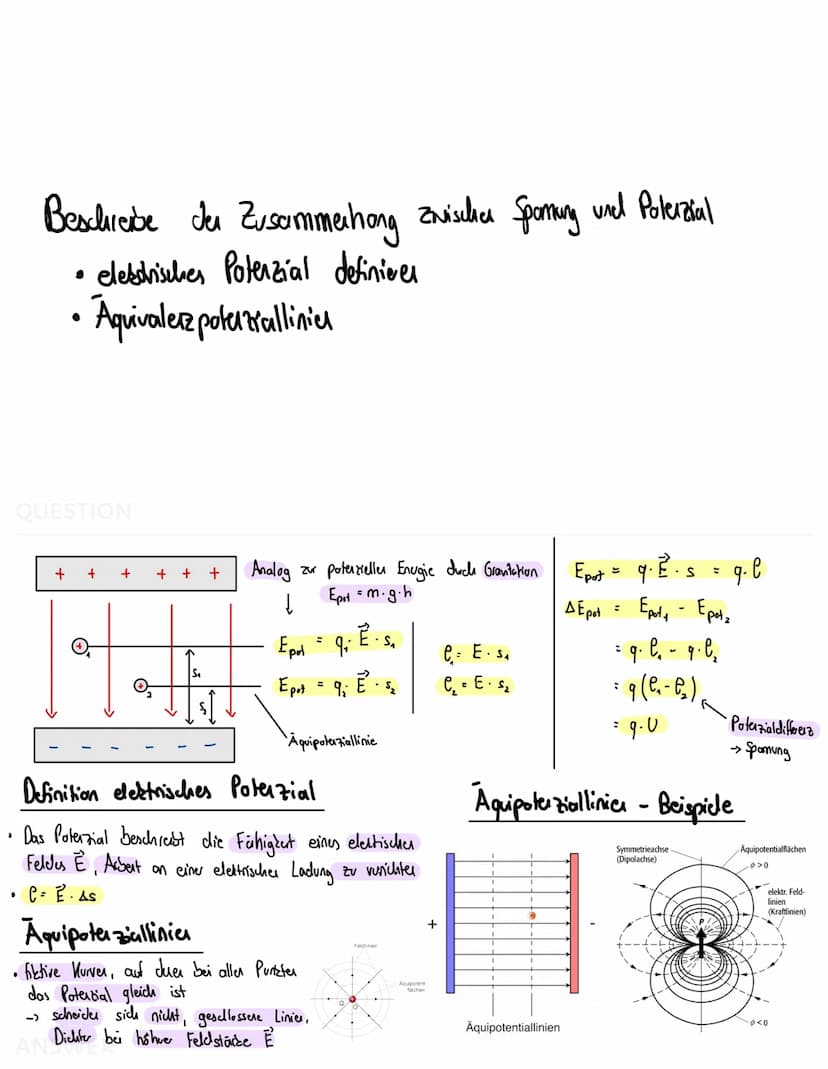 Beschreibe den Zusammenhang zwischen Spannung und Potenzial
• elektrisches Potenzial definieren
• Äquivalenzpotenziallinien
QUESTION
+ + + + + +
Analog zur potenzieller Energie durch Gravitation
↓ E_pot = m·g·h
+ 1
E_pot = q₁·E⃗·s₁
φ₁ = E·s₁
s₁
+ 2
E_pot = q₂·E⃗·s₂
φ₂ = E·s₂
s₂
Äquipotenziallinie
– – – – – –
E_pot = q·E⃗·s = q·φ
ΔE_pot = E_pot₁ - E_pot₂
= q·φ₁ - q·φ₂
= q(φ₁-φ₂)
= q·U
Potenzialdifferenz
→ Spannung
Definition elektrisches Potenzial
• Das Potenzial beschreibt die Fähigkeit eines elektischen
Feldes E⃗, Arbeit an einer elektrischen Ladung zu verrichten
• φ = E⃗·Δs
Äquipotenziallinien
• fiktive Kurven, auf denen bei allen Punkten
das Potenzial gleich ist
→ schneiden sich nicht, geschlossene Linien,
Dichter bei höherer Feldstärke E⃗
ANSWER
Feldlinien
Äquipotential
flächen
Q
Äquipotenziallinien - Beispiele
+
-
Äquipotentiallinien
Symmetrieachse
(Dipolachse)
Äquipotentialflächen
ϕ>0
elektr. Feld-
linien
(Kraftlinien)
P
+
–
ϕ<0